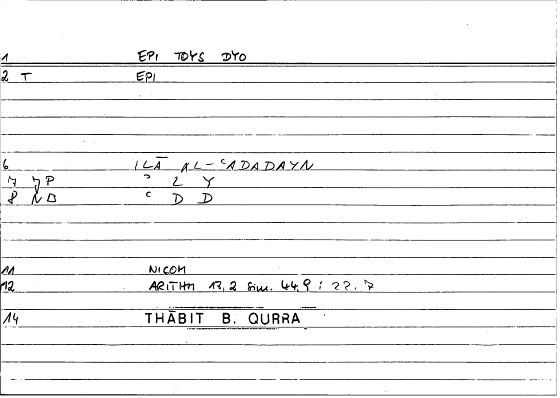 1 EPI TOYS DYO
2 T EPI
6 ILĀ AL-ʿADADAYN
7 ʾ L Y
8 NB ʿ D D
11 NICOM
12 ARITHM 13, 2 sim. 44, 9 : 22, 7
14 THĀBIT B. QURRA